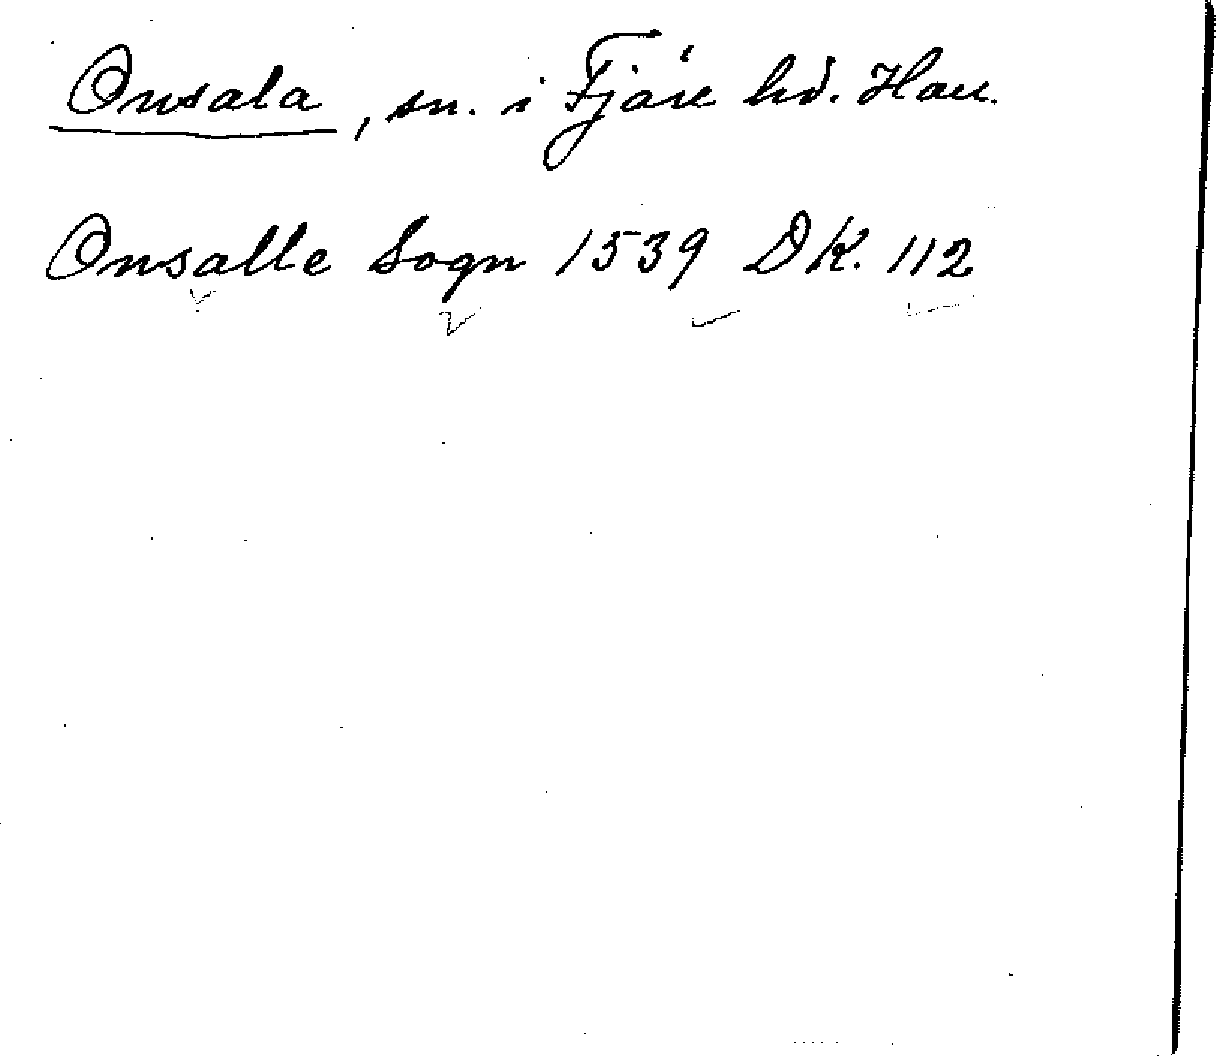 Onsala, sn. i Fjäre hd. Hall.
Onsalle Sogn 1539 DK. 112